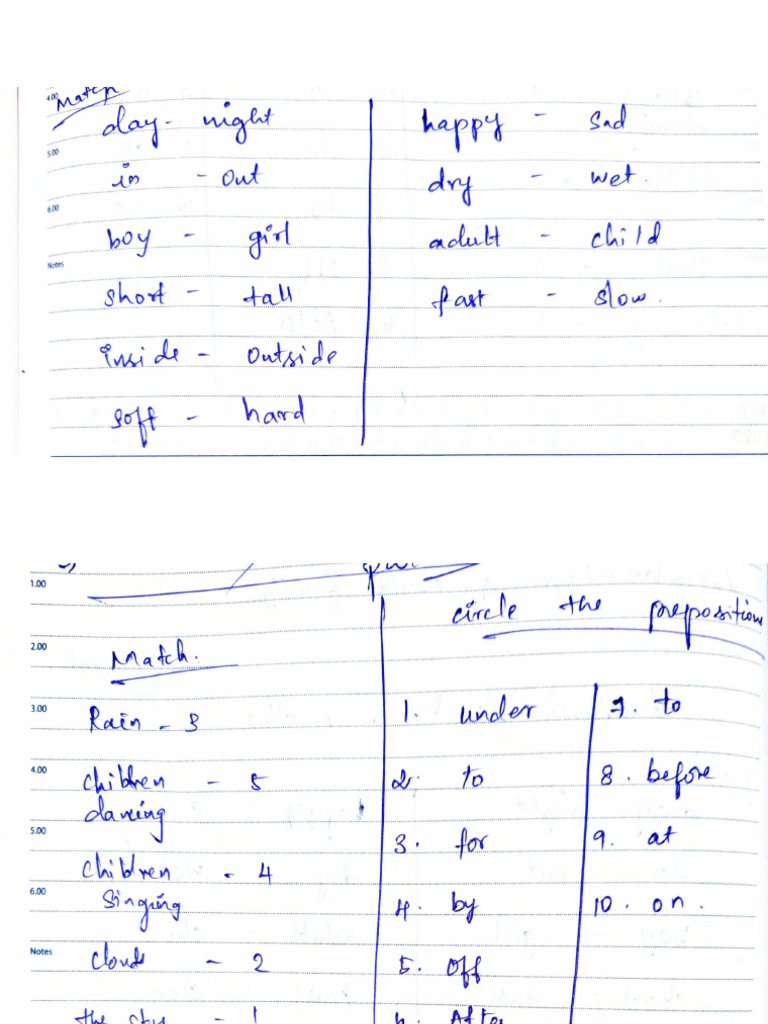 4.00
Match
day - night
5.00
in - out
6.00
boy - girl
Notes
short - tall
inside - outside
soft - hard
happy - sad
dry - wet.
adult - child
fast - slow.
1.00
2.00
Match.
3.00
Rain - 3
4.00
children - 5
dancing
5.00
children - 4
6.00
singing
Notes
clouds - 2
the sky - 1
circle the preposition
1. under
2. to
3. for
4. by
5. off
6. After
7. to
8. before
9. at
10. on.